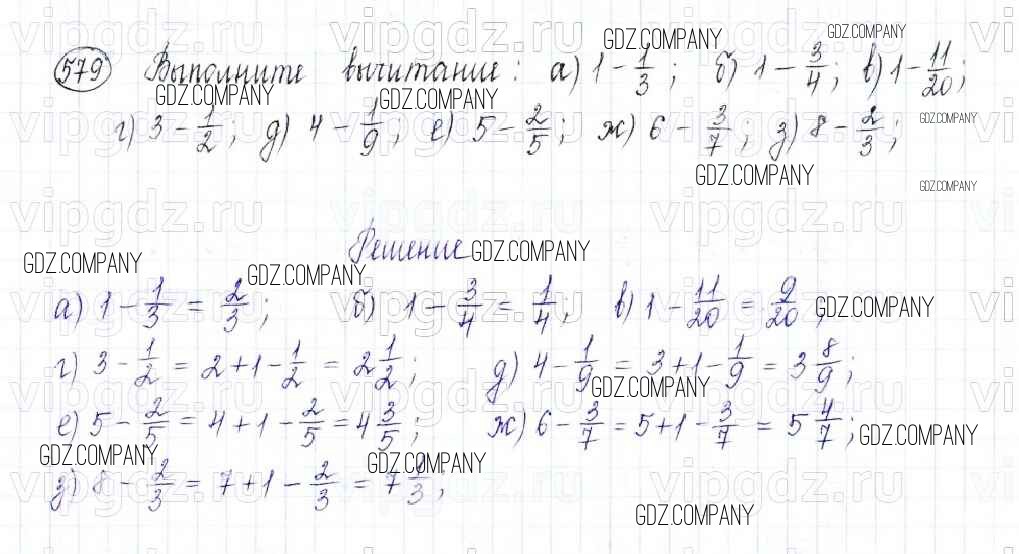 579 Выполните вычитание: а) 1 - 1/3; б) 1 - 3/4; в) 1 - 11/20;
г) 3 - 1/2; д) 4 - 1/9; е) 5 - 2/5; ж) 6 - 3/7; з) 8 - 2/3;
Решение
а) 1 - 1/3 = 2/3; б) 1 - 3/4 = 1/4; в) 1 - 11/20 = 9/20;
г) 3 - 1/2 = 2 + 1 - 1/2 = 2 1/2; д) 4 - 1/9 = 3 + 1 - 1/9 = 3 8/9;
е) 5 - 2/5 = 4 + 1 - 2/5 = 4 3/5; ж) 6 - 3/7 = 5 + 1 - 3/7 = 5 4/7;
з) 8 - 2/3 = 7 + 1 - 2/3 = 7 1/3;
GDZ.COMPANY
vipgdz.ru